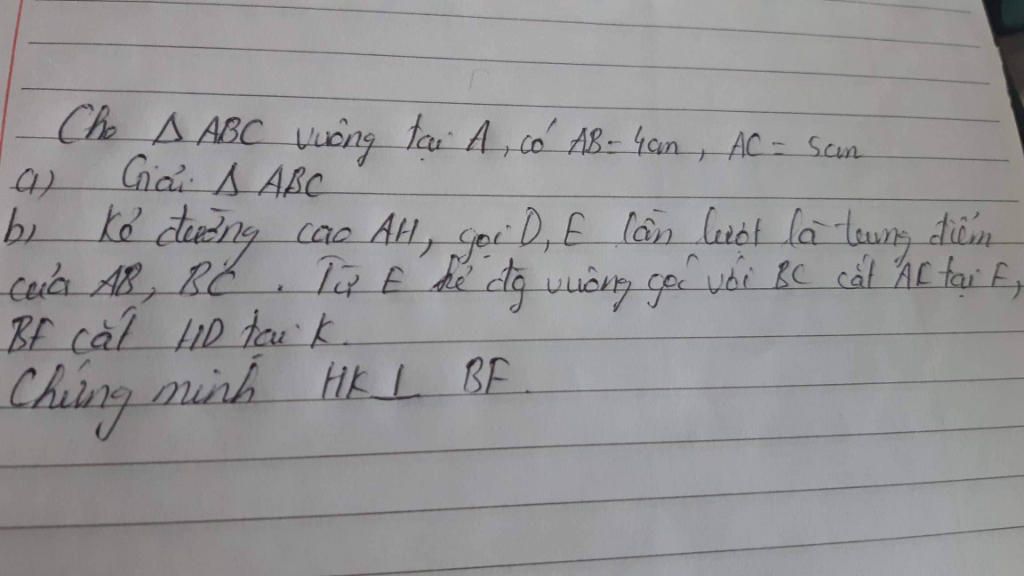 Cho Δ ABC vuông tại A, có AB = 4cm, AC = 5cm
a) Giải Δ ABC
b) Kẻ đường cao AH, gọi D, E lần lượt là trung điểm
của AB, BC. Từ E kẻ đg vuông góc với BC cắt AC tại F,
BF cắt HD tại K.
Chứng minh HK ⊥ BF.